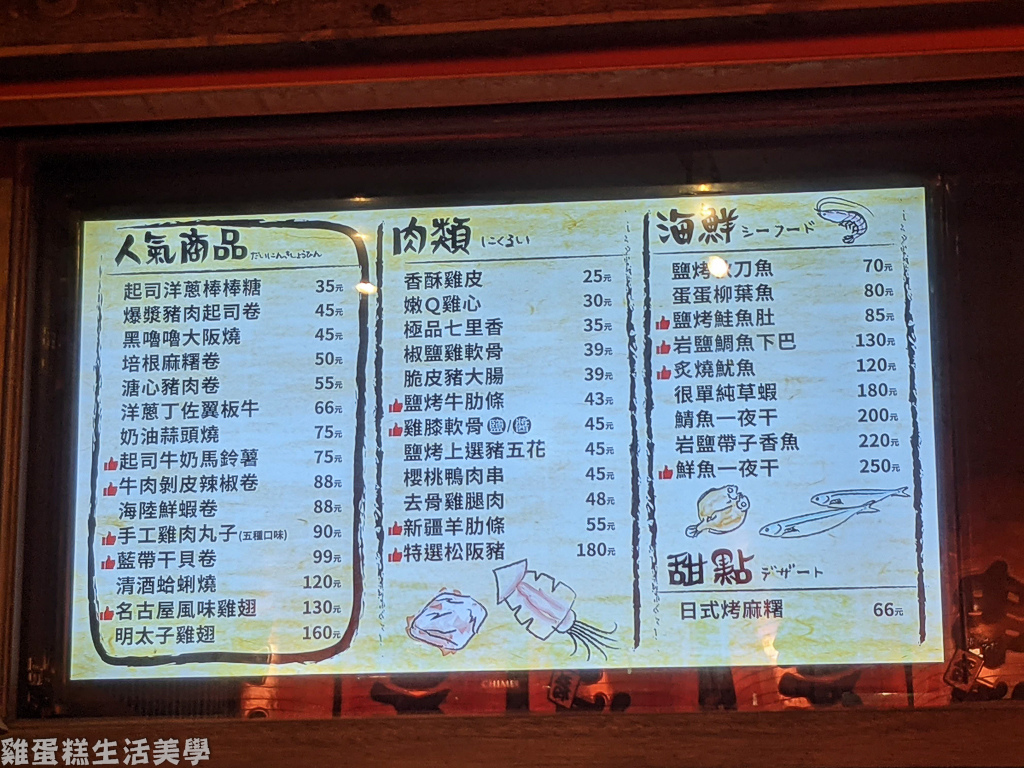 人氣商品 だいにんきしょうひん
起司洋蔥棒棒糖 35元
爆漿豬肉起司卷 45元
黑嚕嚕大阪燒 45元
培根麻糬卷 50元
溏心豬肉卷 55元
洋蔥丁佐翼板牛 66元
奶油蒜頭燒 75元
起司牛奶馬鈴薯 75元
牛肉剝皮辣椒卷 88元
海陸鮮蝦卷 88元
手工雞肉丸子(五種口味) 90元
藍帶干貝卷 99元
清酒蛤蜊燒 120元
名古屋風味雞翅 130元
明太子雞翅 160元
肉類 にくるい
香酥雞皮 25元
嫩Q雞心 30元
極品七里香 35元
椒鹽雞軟骨 39元
脆皮豬大腸 39元
鹽烤牛肋條 43元
雞膝軟骨 鹽/醬 45元
鹽烤上選豬五花 45元
櫻桃鴨肉串 45元
去骨雞腿肉 48元
新疆羊肋條 55元
特選松阪豬 180元
海鮮 シーフード
鹽烤 刀魚 70元
蛋蛋柳葉魚 80元
鹽烤鮭魚肚 85元
岩鹽鯛魚下巴 130元
炙燒魷魚 120元
很單純草蝦 180元
鯖魚一夜干 200元
岩鹽帶子香魚 220元
鮮魚一夜干 250元
甜點 デザート
日式烤麻糬 66元
CHIMEI
雞蛋糕生活美學